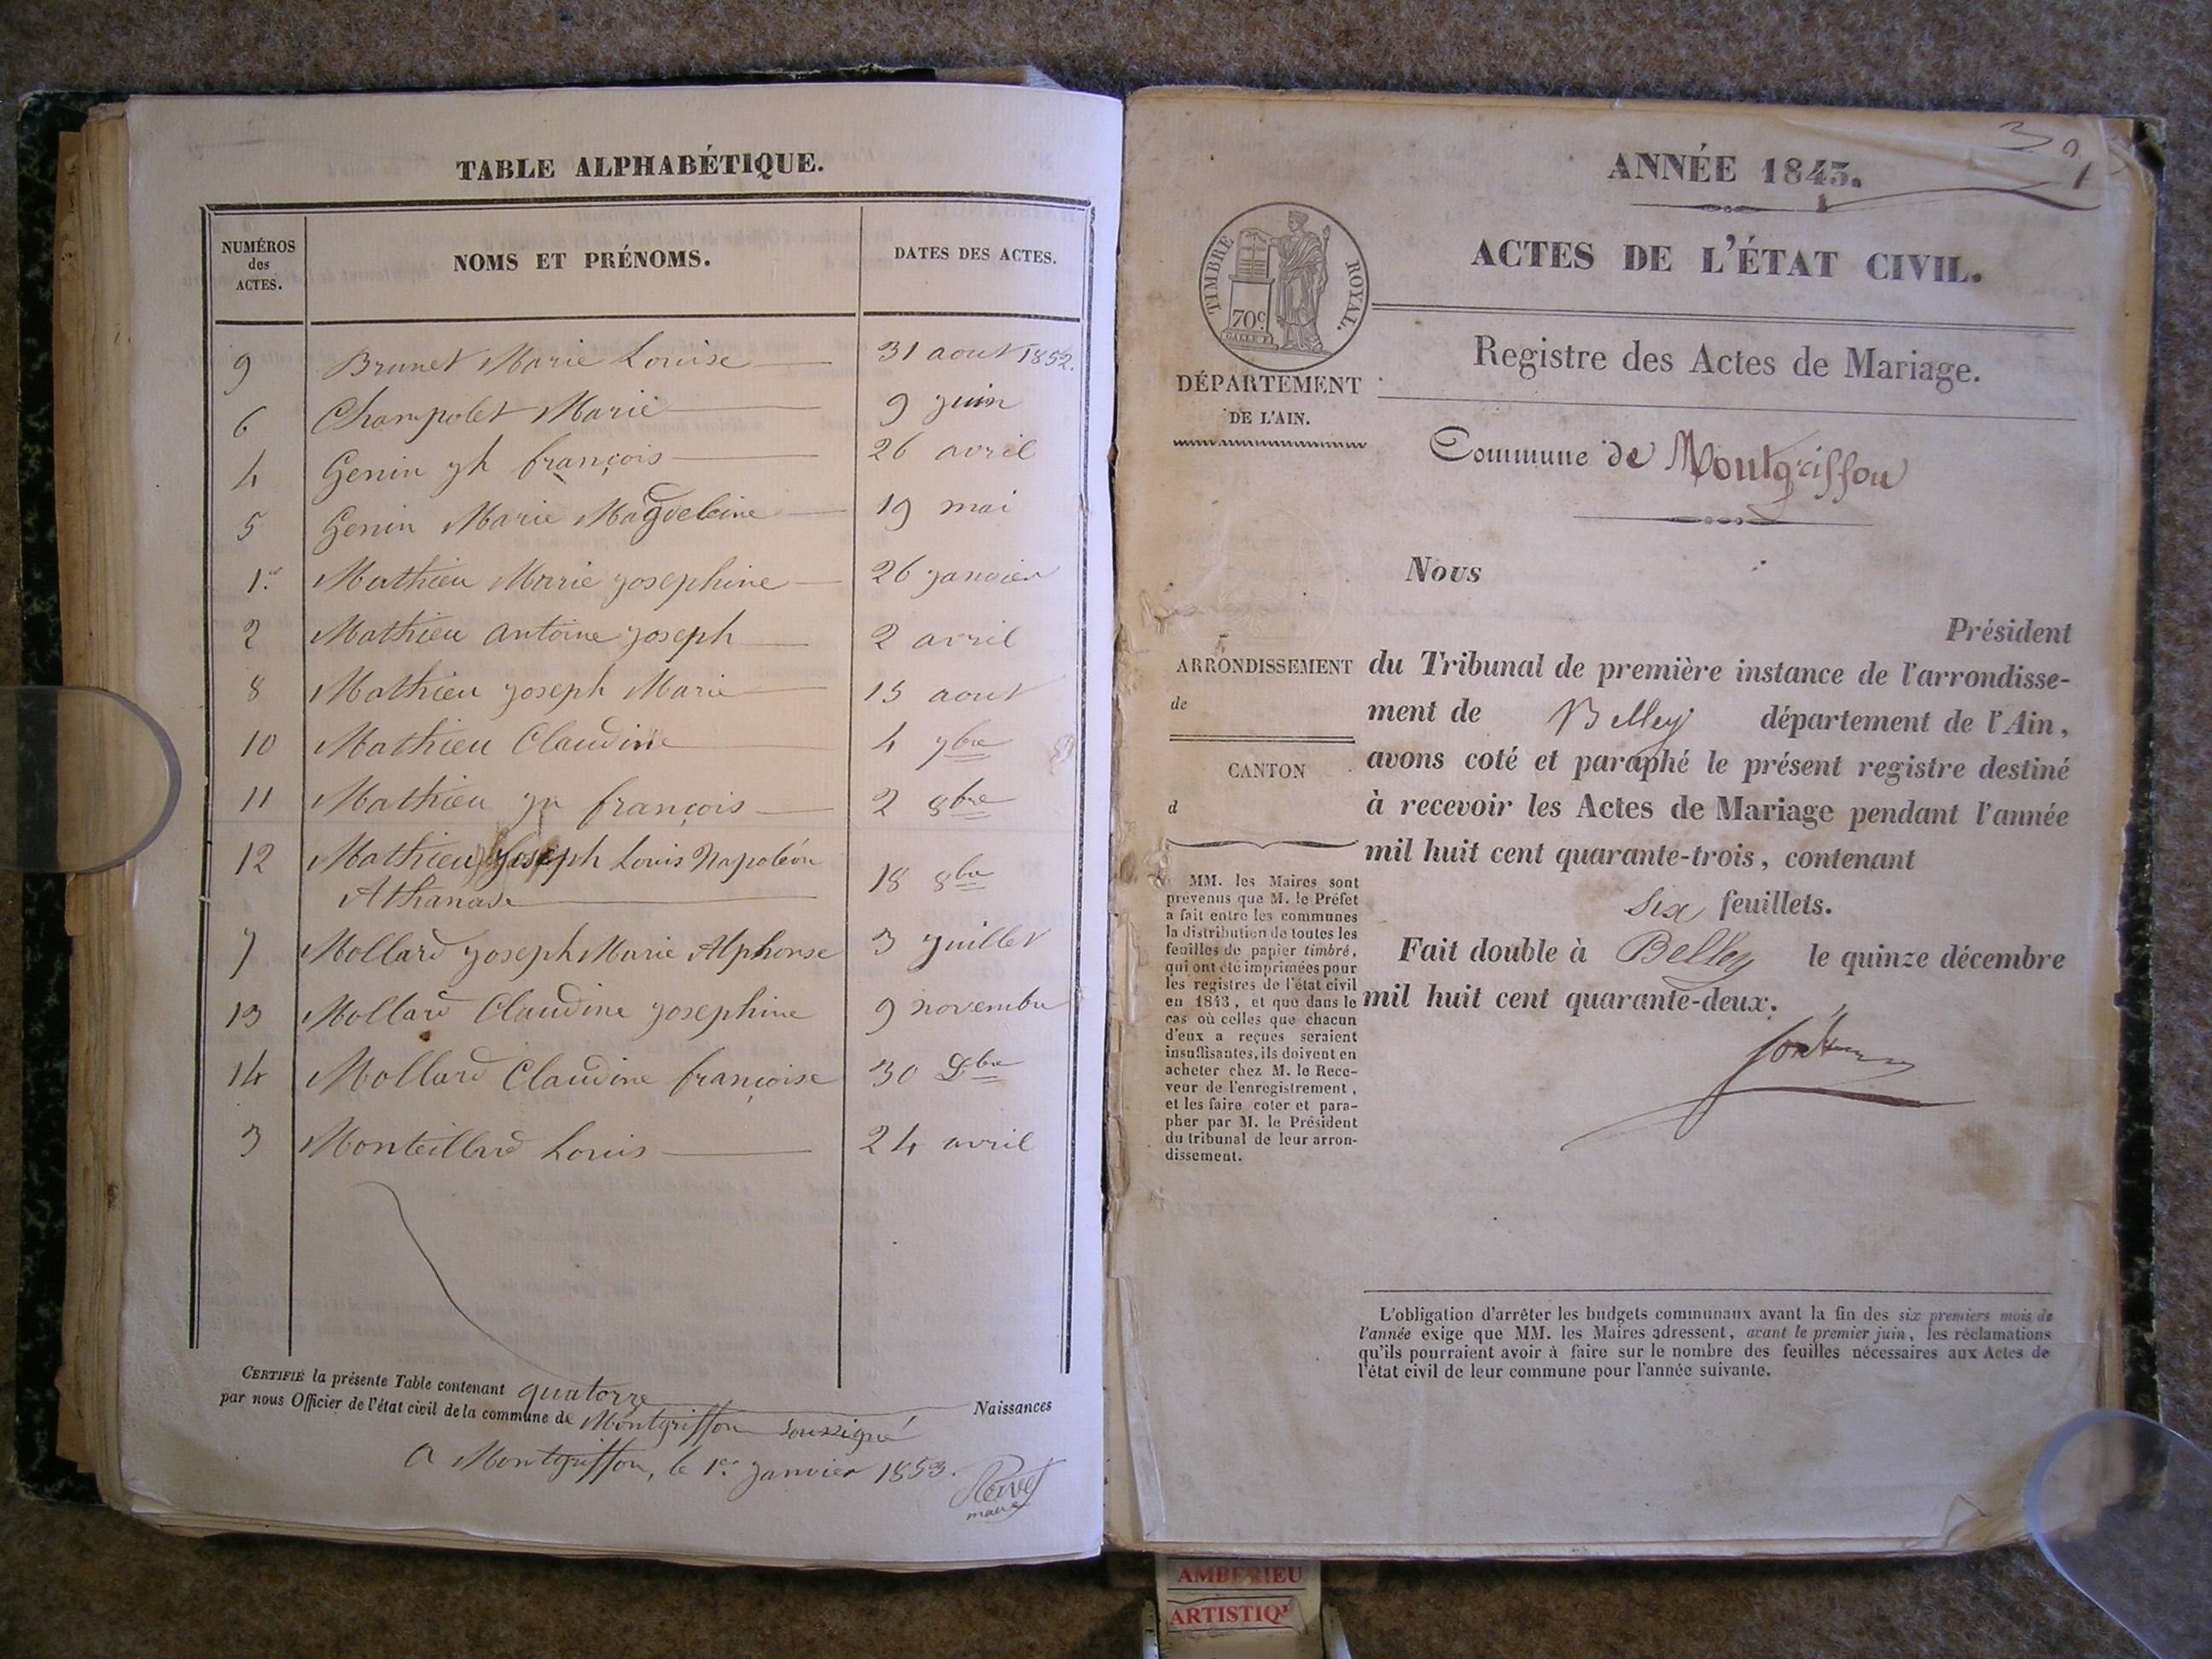 TABLE ALPHABÉTIQUE.
NUMÉROS des ACTES. NOMS ET PRÉNOMS. DATES DES ACTES.
9 Brunet Marie Louise 31 aout 1852.
6 Champolet Marie 9 juin
4 Genin jh françois 26 avril
5 Genin Marie Magdeleine 19 mai
1er Mathieu Marie josephine 26 janvier
2 Mathieu antoine joseph 2 avril
8 Mathieu joseph Marie 15 aout
10 Mathieu Claudine 4 7bre
11 Mathieu françois 2 8bre
12 Mathieu Joseph Louis Napoléon
Athanase 18 8bre
7 Mollard joseph Marie Alphonse 3 juillet
13 Mollard Claudine josephine 9 novembre
14 Mollard Claudine françoise 30 Dbre
3 Monteillard Louis 24 avril
CERTIFIÉ la présente Table contenant quatorze Naissances
par nous Officier de l'état civil de la commune de Montgriffon soussigné
A Montgriffon, le 1er janvier 1853.
maire
ANNÉE 1843.
ACTES DE L'ÉTAT CIVIL.
TIMBRE ROYAL.
70c
Registre des Actes de Mariage.
DÉPARTEMENT
DE L'AIN.
Commune de Montgriffon
Nous
Président
ARRONDISSEMENT
de
CANTON
d
du Tribunal de première instance de l'arrondisse-
ment de Belley département de l'Ain,
avons coté et paraphé le présent registre destiné
à recevoir les Actes de Mariage pendant l'année
mil huit cent quarante-trois, contenant
six feuillets.
Fait double à Belley le quinze décembre
mil huit cent quarante-deux.
MM. les Maires sont
prévenus que M. le Préfet
a fait entre les communes
la distribution de toutes les
feuilles de papier timbré,
qui ont été imprimées pour
les registres de l'état civil
en 1843, et que dans le
cas où celles que chacun
d'eux a reçues seraient
insuffisantes, ils doivent en
acheter chez M. le Rece-
veur de l'enregistrement,
et les faire coter et para-
pher par M. le Président
du tribunal de leur arron-
dissement.
L'obligation d'arrêter les budgets communaux avant la fin des six premiers mois de
l'année exige que MM. les Maires adressent, avant le premier juin, les réclamations
qu'ils pourraient avoir à faire sur le nombre des feuilles nécessaires aux Actes de
l'état civil de leur commune pour l'année suivante.
AMBERIEU
ARTISTIQ